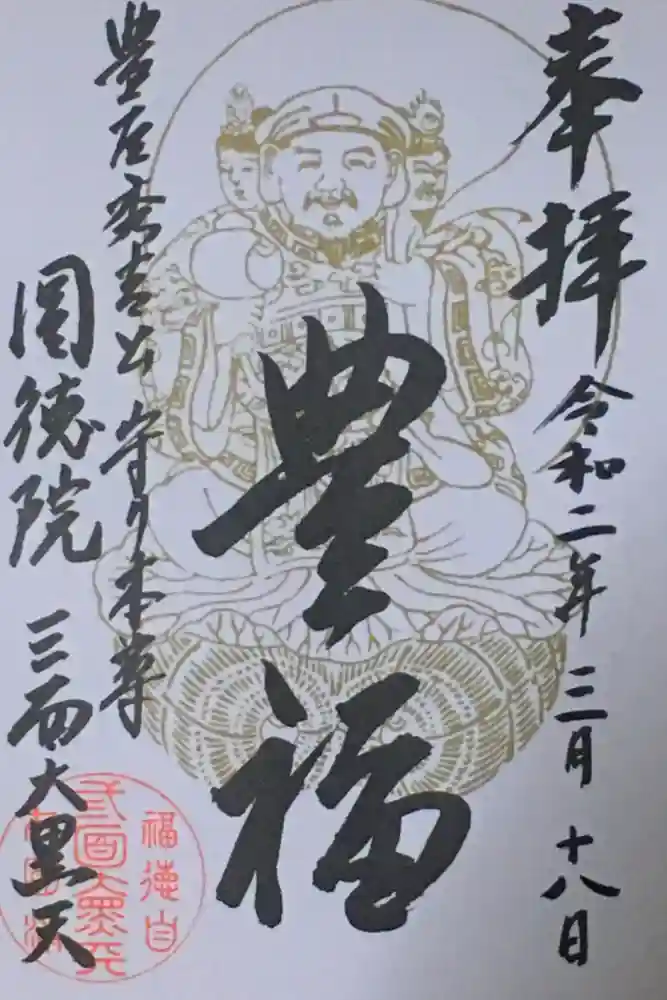 奉拝
令和二年三月十八日
豊福
豊臣秀吉公守り本尊
圓徳院
三面大黒天
三面大黒天
福徳自